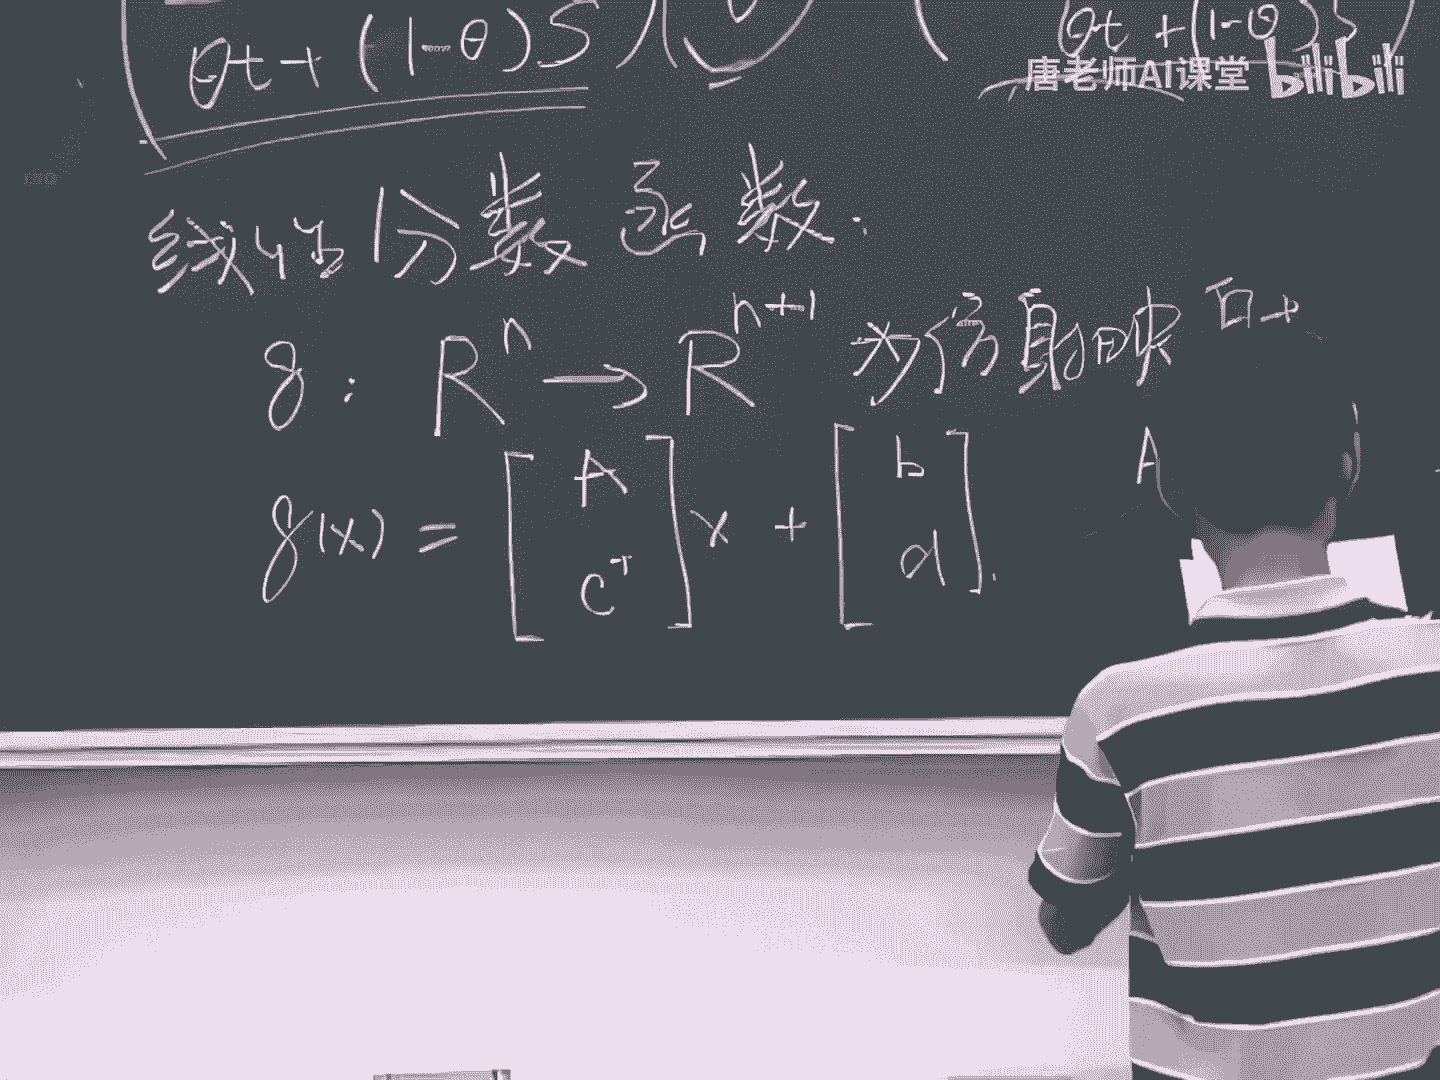 θt + (1-θ)S
θt + (1-θ)S
唐老师AI课堂 bilibili
线性分数函数.
g: Rⁿ → Rⁿ⁺¹ 为仿射映
g(x) = [A cᵀ] x + [b d]. A